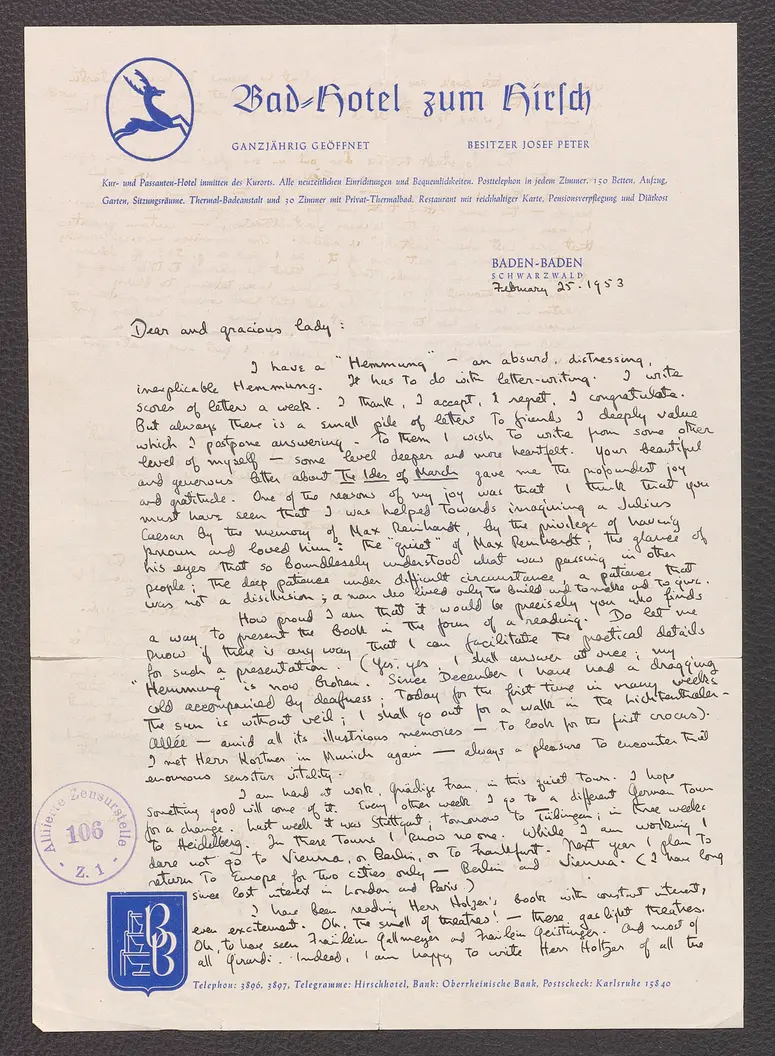 Bad-Hotel zum Hirsch
GANZJÄHRIG GEÖFFNET BESITZER JOSEF PETER
Kur- und Passanten-Hotel inmitten des Kurorts. Alle neuzeitlichen Einrichtungen und Bequemlichkeiten. Posttelephon in jedem Zimmer. 150 Betten, Aufzug,
Garten, Sitzungsräume. Thermal-Badeanstalt und 30 Zimmer mit Privat-Thermalbad. Restaurant mit reichhaltiger Karte, Pensionsverpflegung und Diätkost
BADEN-BADEN
SCHWARZWALD
February 25. 1953
Dear and gracious lady:
I have a "Hemmung" — an absurd, distressing,
inexplicable Hemmung. It has to do with letter-writing. I write
scores of letter a week. I thank, I accept, I regret, I congratulate.
But always there is a small pile of letters to friends I deeply value
which I postpone answering. To them I wish to write from some other
level of myself — some level deeper and more heartfelt. Your beautiful
and generous letter about The Ides of March gave me the profoundest joy
and gratitude. One of the reasons of my joy was that I think that you
must have seen that I was helped towards imagining a Julius
Caesar by the memory of Max Reinhardt, by the privilege of having
known and loved him: the "quiet" of Max Reinhardt; the glance of
his eyes that so boundlessly understood what was passing in other
people; the deep patience under difficult circumstance, a patience that
was not a disillusion; a man who lived only to build and to make and to give.
How proud I am that it would be precisely you who finds
a way to present the book in the form of a reading. Do let me
know if there is any way that I can facilitate the practical details
for such a presentation. (Yes, yes, I shall answer at once; my
"Hemmung" is now broken. Since December I have had a dragging
cold accompanied by deafness; today for the first time in many weeks
the sun is without veil; I shall go out for a walk in the Lichtenthaler-
Allée — amid all its illustrious memories — to look for the first crocus).
I met Herr Kortner in Munich again — always a pleasure to encounter that
enormous sensitiv vitality.
I am hard at work, Gnädige Frau, in this quiet town. I hope
something good will come of it. Every other week I go to a different German town
for a change. Last week it was Stuttgart; tomorrow to Tübingen; in three weeks
to Heidelberg. In these towns I know no one. While I am working I
dare not go to Vienna, or Berlin, or to Frankfurt. Next year I plan to
return to Europe for two cities only — Berlin and Vienna. (I have long
since lost interest in London and Paris)
I have been reading Herr Holzer's book with constant interest,
even excitement. Oh, the smell of theatres! — those gas-light theatres.
Oh, to have seen Fräulein Gallmeyer and Fräulein Geistinger. And most of
all Girardi. Indeed, I am happy to write Herr Holtzer of all the
Alliierte Zensurstelle
106
- Z. 1 -
BB
Telephon: 3896, 3897, Telegramme: Hirschhotel, Bank: Oberrheinische Bank, Postscheck: Karlsruhe 15840